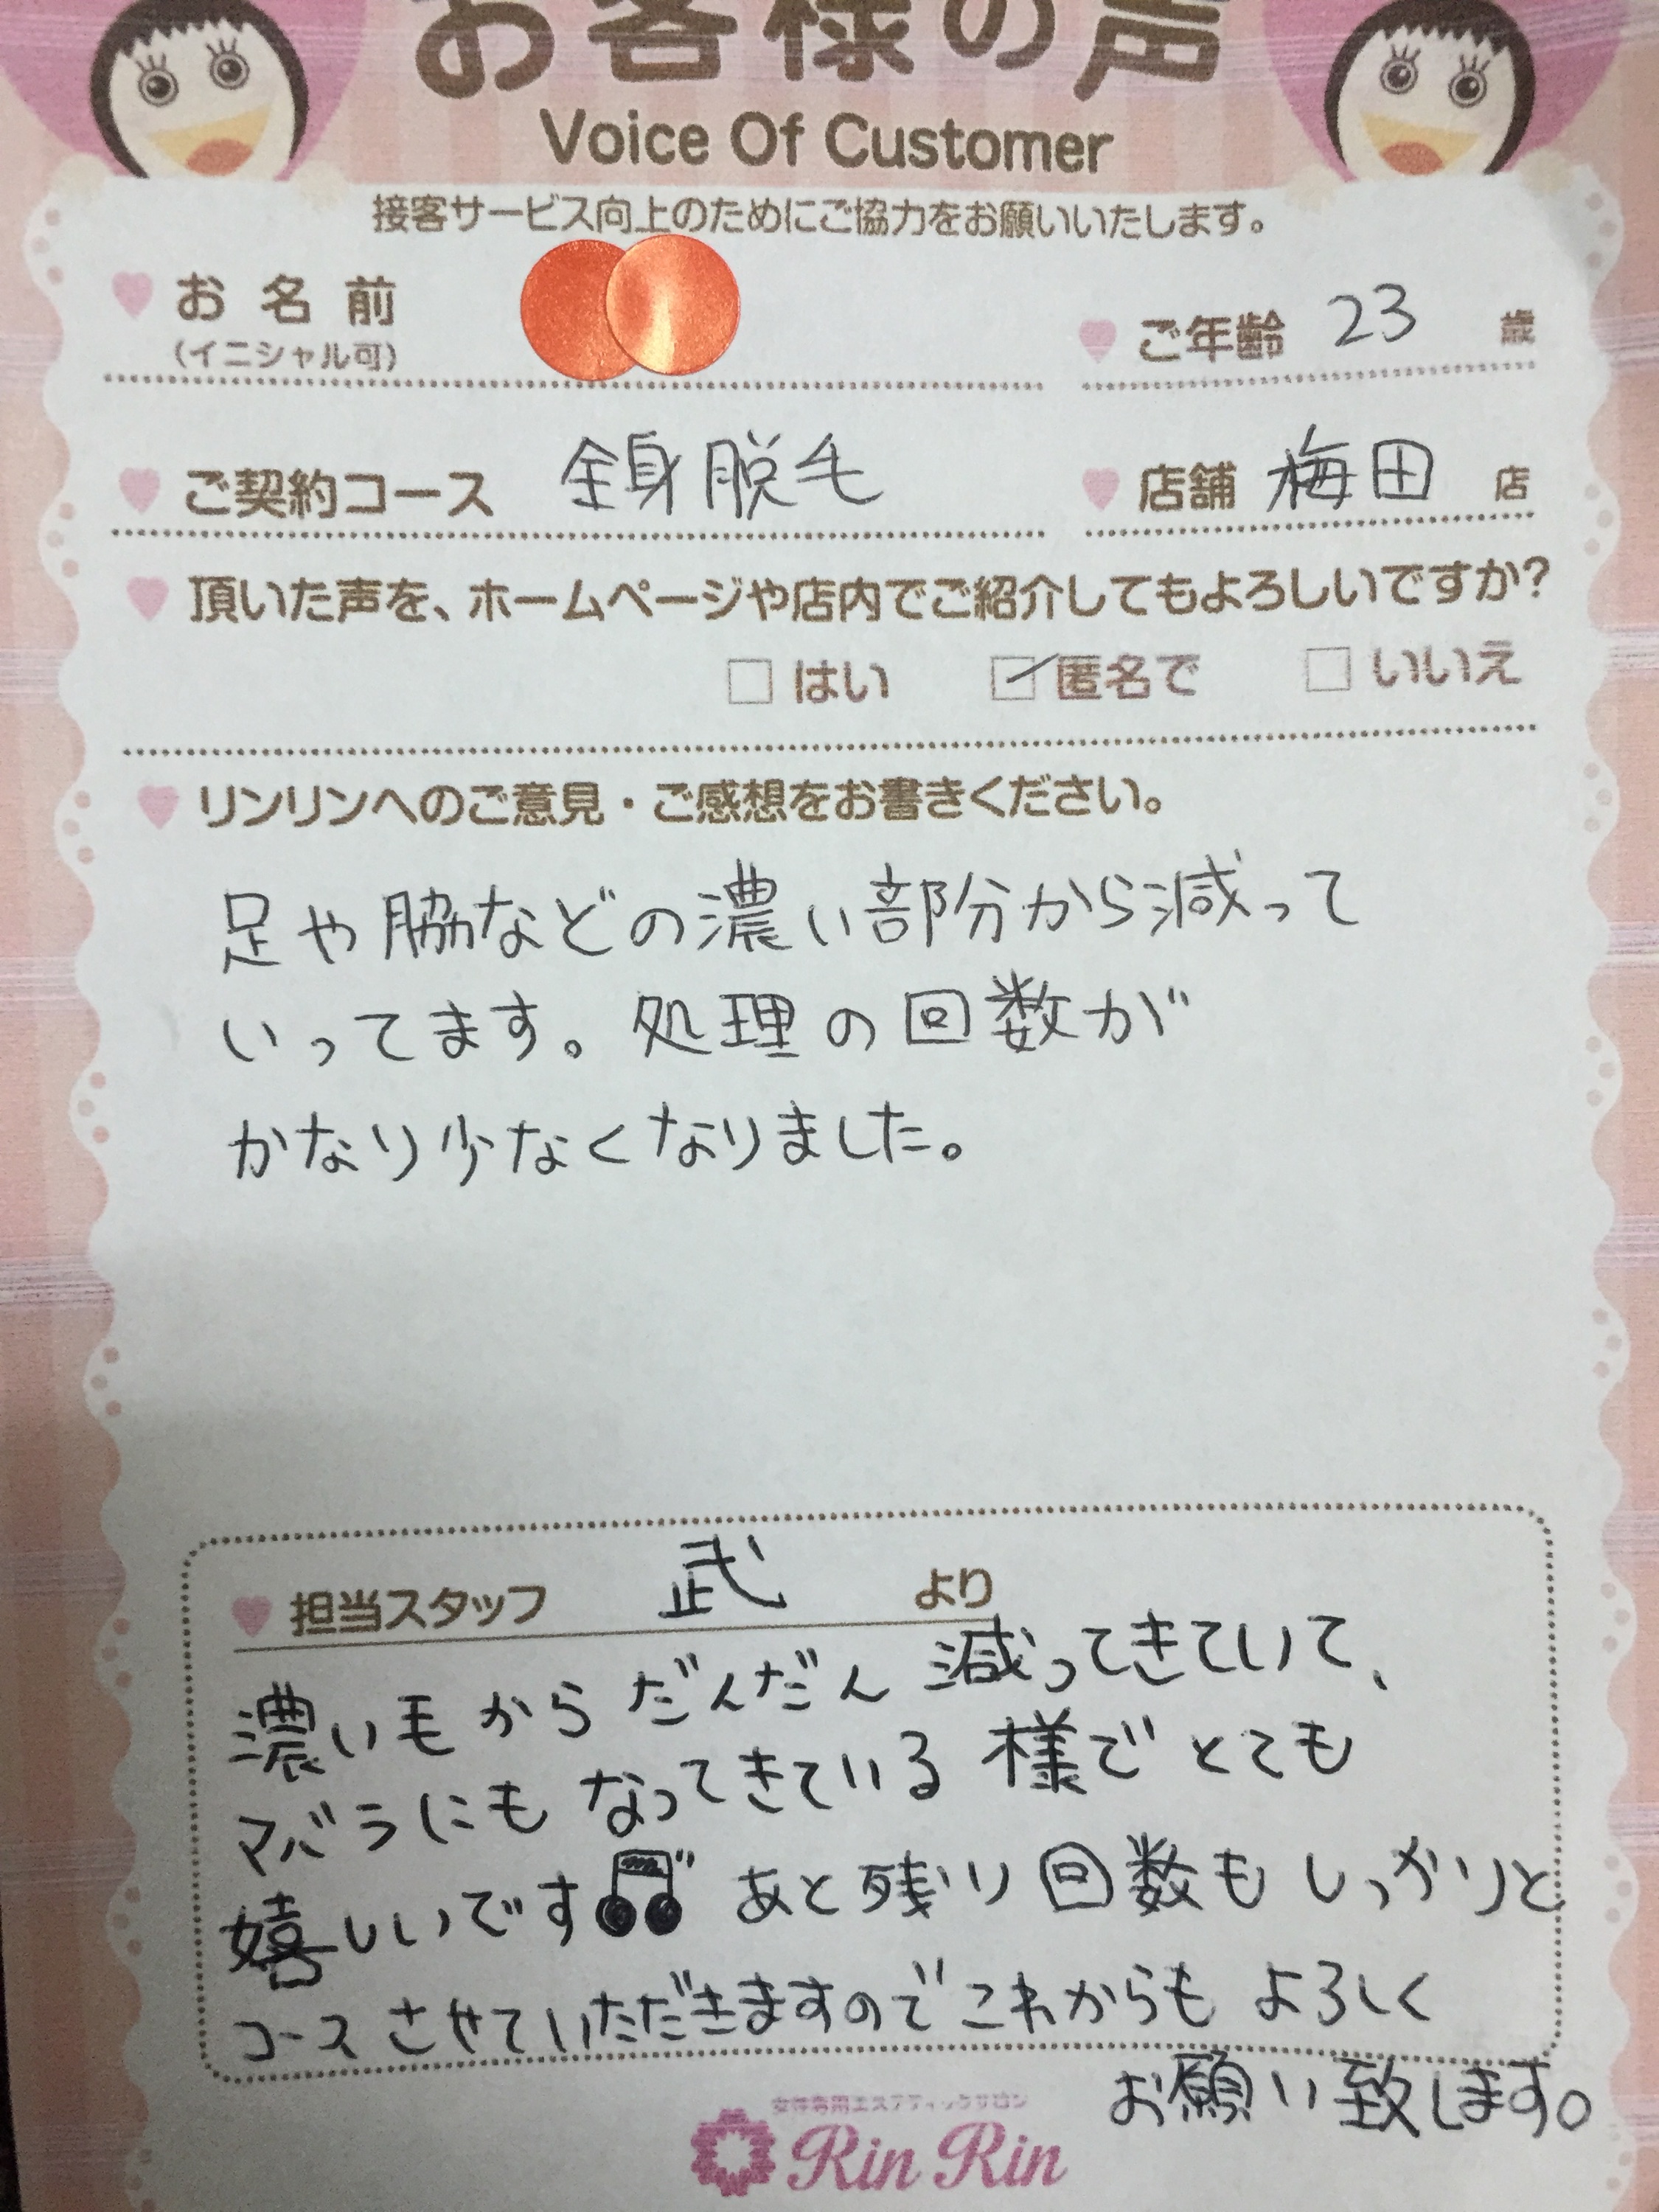 お客様の声
Voice Of Customer
接客サービス向上のためにご協力をお願いいたします。
お名前
(イニシャル可)
ご年齢 23 歳
ご契約コース 全身脱毛
店舗 梅田 店
頂いた声を、ホームページや店内でご紹介してもよろしいですか?
はい 匿名で いいえ
リンリンへのご意見・ご感想をお書きください。
足や脇などの濃い部分から減って
いってます。処理の回数が
かなり少なくなりました。
担当スタッフ 武 より
濃い毛からだんだん減ってきていて、
マバラにもなってきている様でとても
嬉しいです あと残り回数もしっかりと
コースさせていただきますのでこれからもよろしく
お願い致します。
女性専用エステティックサロン
Rin Rin